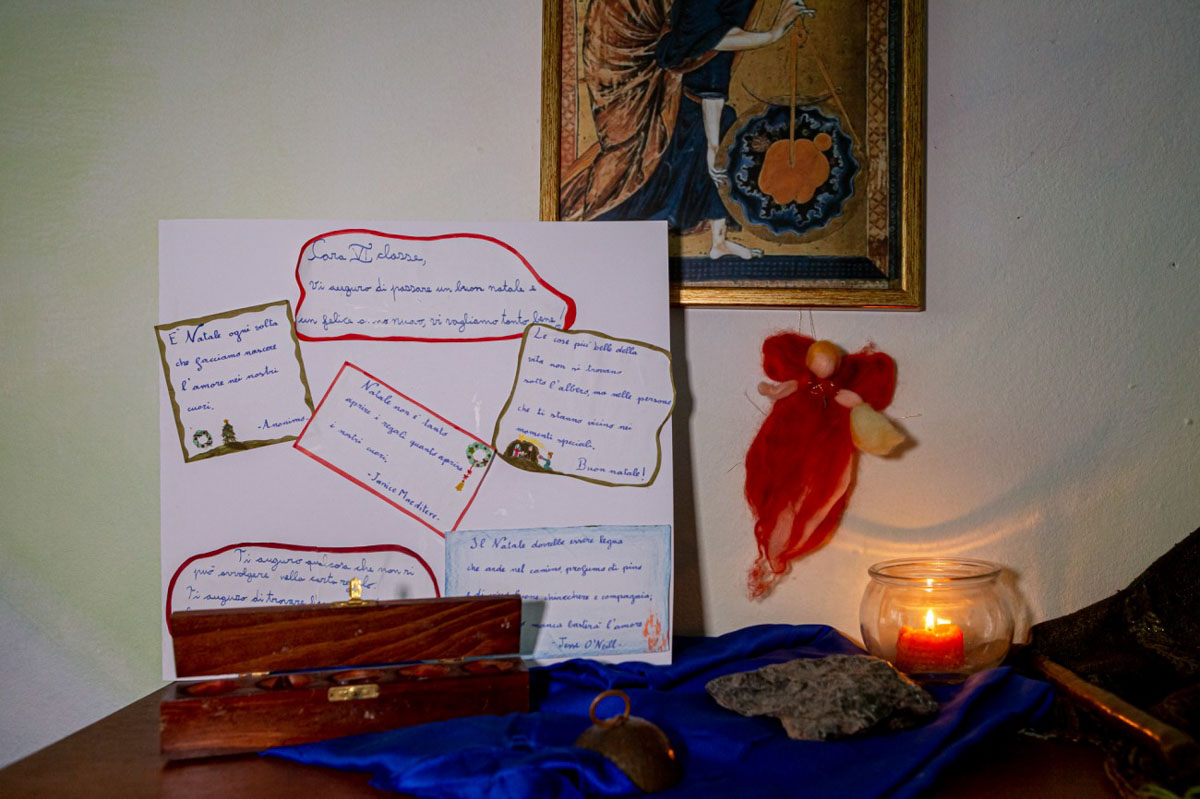 Cara VI classe,
Vi auguro di passare un buon natale e
un felice anno nuovo, vi vogliamo tanto bene!
È Natale ogni volta
che facciamo nascere
l'amore nei nostri
cuori.
-Anonimo-
Natale non è tanto
aprire i regali quanto aprire
i nostri cuori.
-Janice Maeditere-
Le cose più belle della
vita non si trovano
sotto l'albero, ma nelle persone
che ti stanno vicino nei
momenti speciali.
Buon natale!
Ti auguro qualcosa che non si
può avvolgere nella carta regalo.
Ti auguro di trovare
Il Natale dovrebbe essere legna
che arde nel camino, profumo di pino
chiacchere e compagnia;
manca basterà l'amore
-Jone O'Neill-